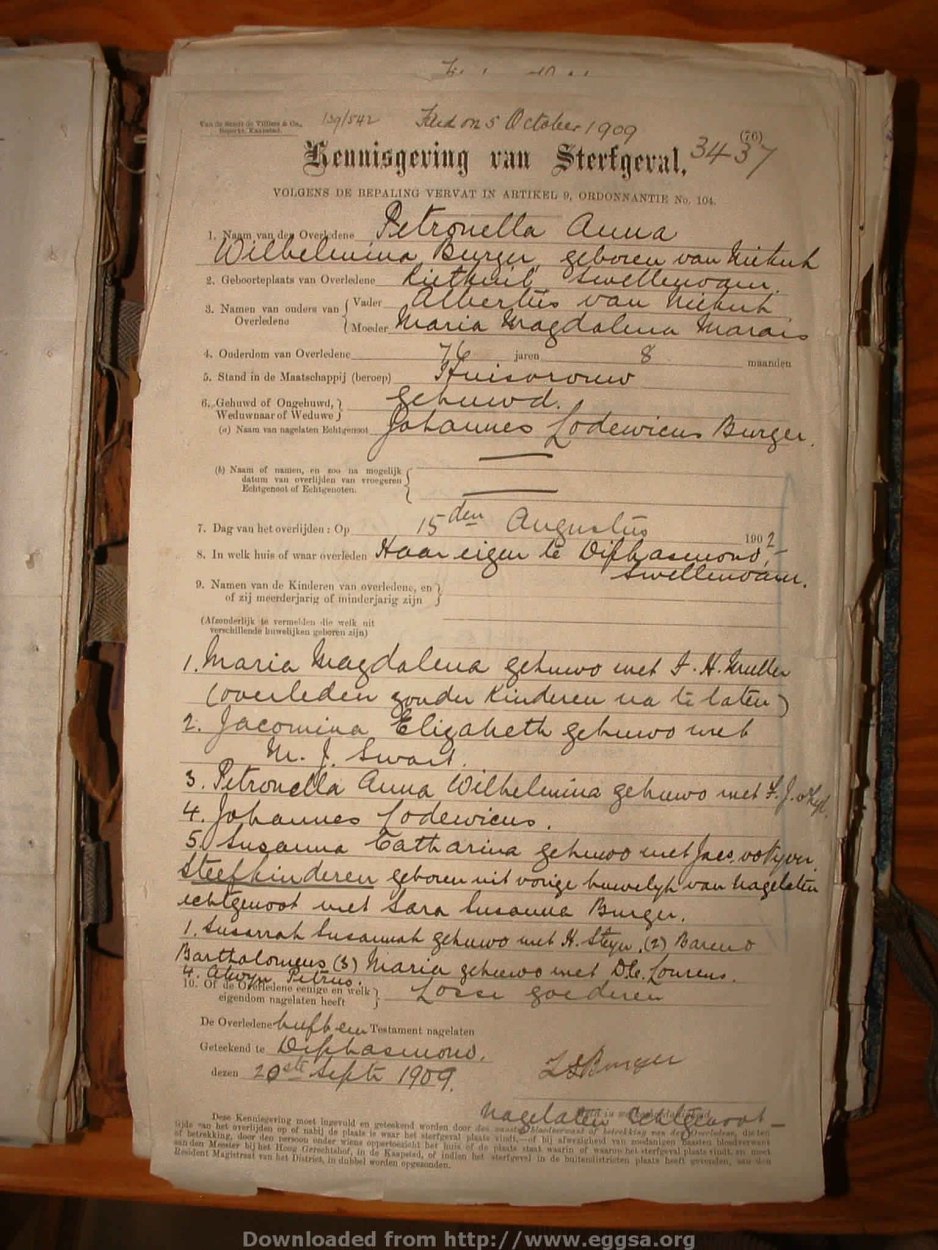 Van de Sandt de Villiers & Co.,
Beperkt, Kaapstad.
139/542
Filed on 5 October 1909
(76)
3437
Kennisgeving van Sterfgeval,
VOLGENS DE BEPALING VERVAT IN ARTIKEL 9, ORDONNANTIE No. 104.
1. Naam van den Overledene Petronella Anna
Wilhelmina Burger geboren van Niekerk
2. Geboorteplaats van Overledene Rietkuil Swellendam.
3. Namen van ouders van Overledene { Vader Albertus van Niekerk
Moeder Maria Magdalena Marais
4. Ouderdom van Overledene 76 jaren 8 maanden
5. Stand in de Maatschappij (beroep) Huisvrouw
6. Gehuwd of Ongehuwd, Weduwnaar of Weduwe } gehuwd.
(a) Naam van nagelaten Echtgenoot Johannes Lodewicus Burger.
(b) Naam of namen, en zoo na mogelijk
datum van overlijden van vroegeren
Echtgenoot of Echtgenoten.
7. Dag van het overlijden: Op 15den Augustus 190
8. In welk huis of waar overleden Haar eigen te
Swellendam.
9. Namen van de Kinderen van overledene, en
of zij meerderjarig of minderjarig zijn
(Afzonderlijk te vermelden die welk uit
verschillende huwelijken geboren zijn)
1. Maria Magdalena gehuwd met H. Muller
(overleden zonder Kinderen na te laten)
2. Jacomina Elizabeth gehuwd met
M. J. Swart.
3. Petronella Anna Wilhelmina gehuwd met
4. Johannes Lodewicus.
5. Susanna Catharina gehuwd met
Steefkinderen geboren uit vorige huwelyk van nagelaten
echtgenoot met Sara Susanna Burger.
1. Susannah gehuwd met H. Steyn, (2) Barend
Bartholomeus (3) Maria gehuwd met Lourens.
4. Alwyn Petrus.
10. Of de Overledene eenige en welk
eigendom nagelaten heeft } Losse goederen
De Overledene heeft een Testament nagelaten
Geteekend te
dezen 20ste Septr 1909.
Burger
Nagelaten Echtgenoot
Deze Kennisgeving moet ingevuld en geteekend worden door den naasten bloedverwant of betrekking van den Overledene, die ten
tijde van het overlijden op of nabij de plaats is waar het sterfgeval plaats vindt,—of bij afwezigheid van zoodanigen naasten bloedverwant
of betrekking, door den persoon onder wiens oppertoezicht het huis of de plaats staat waarin of waarop het sterfgeval plaats vindt, en moet
aan den Meester bij het Hoog Gerechtshof, in de Kaapstad, of indien het sterfgeval in de buitendistricten plaats heeft gevonden, aan den
Resident Magistraat van het District, in dubbel worden opgezonden.
Downloaded from http://www.eggsa.org